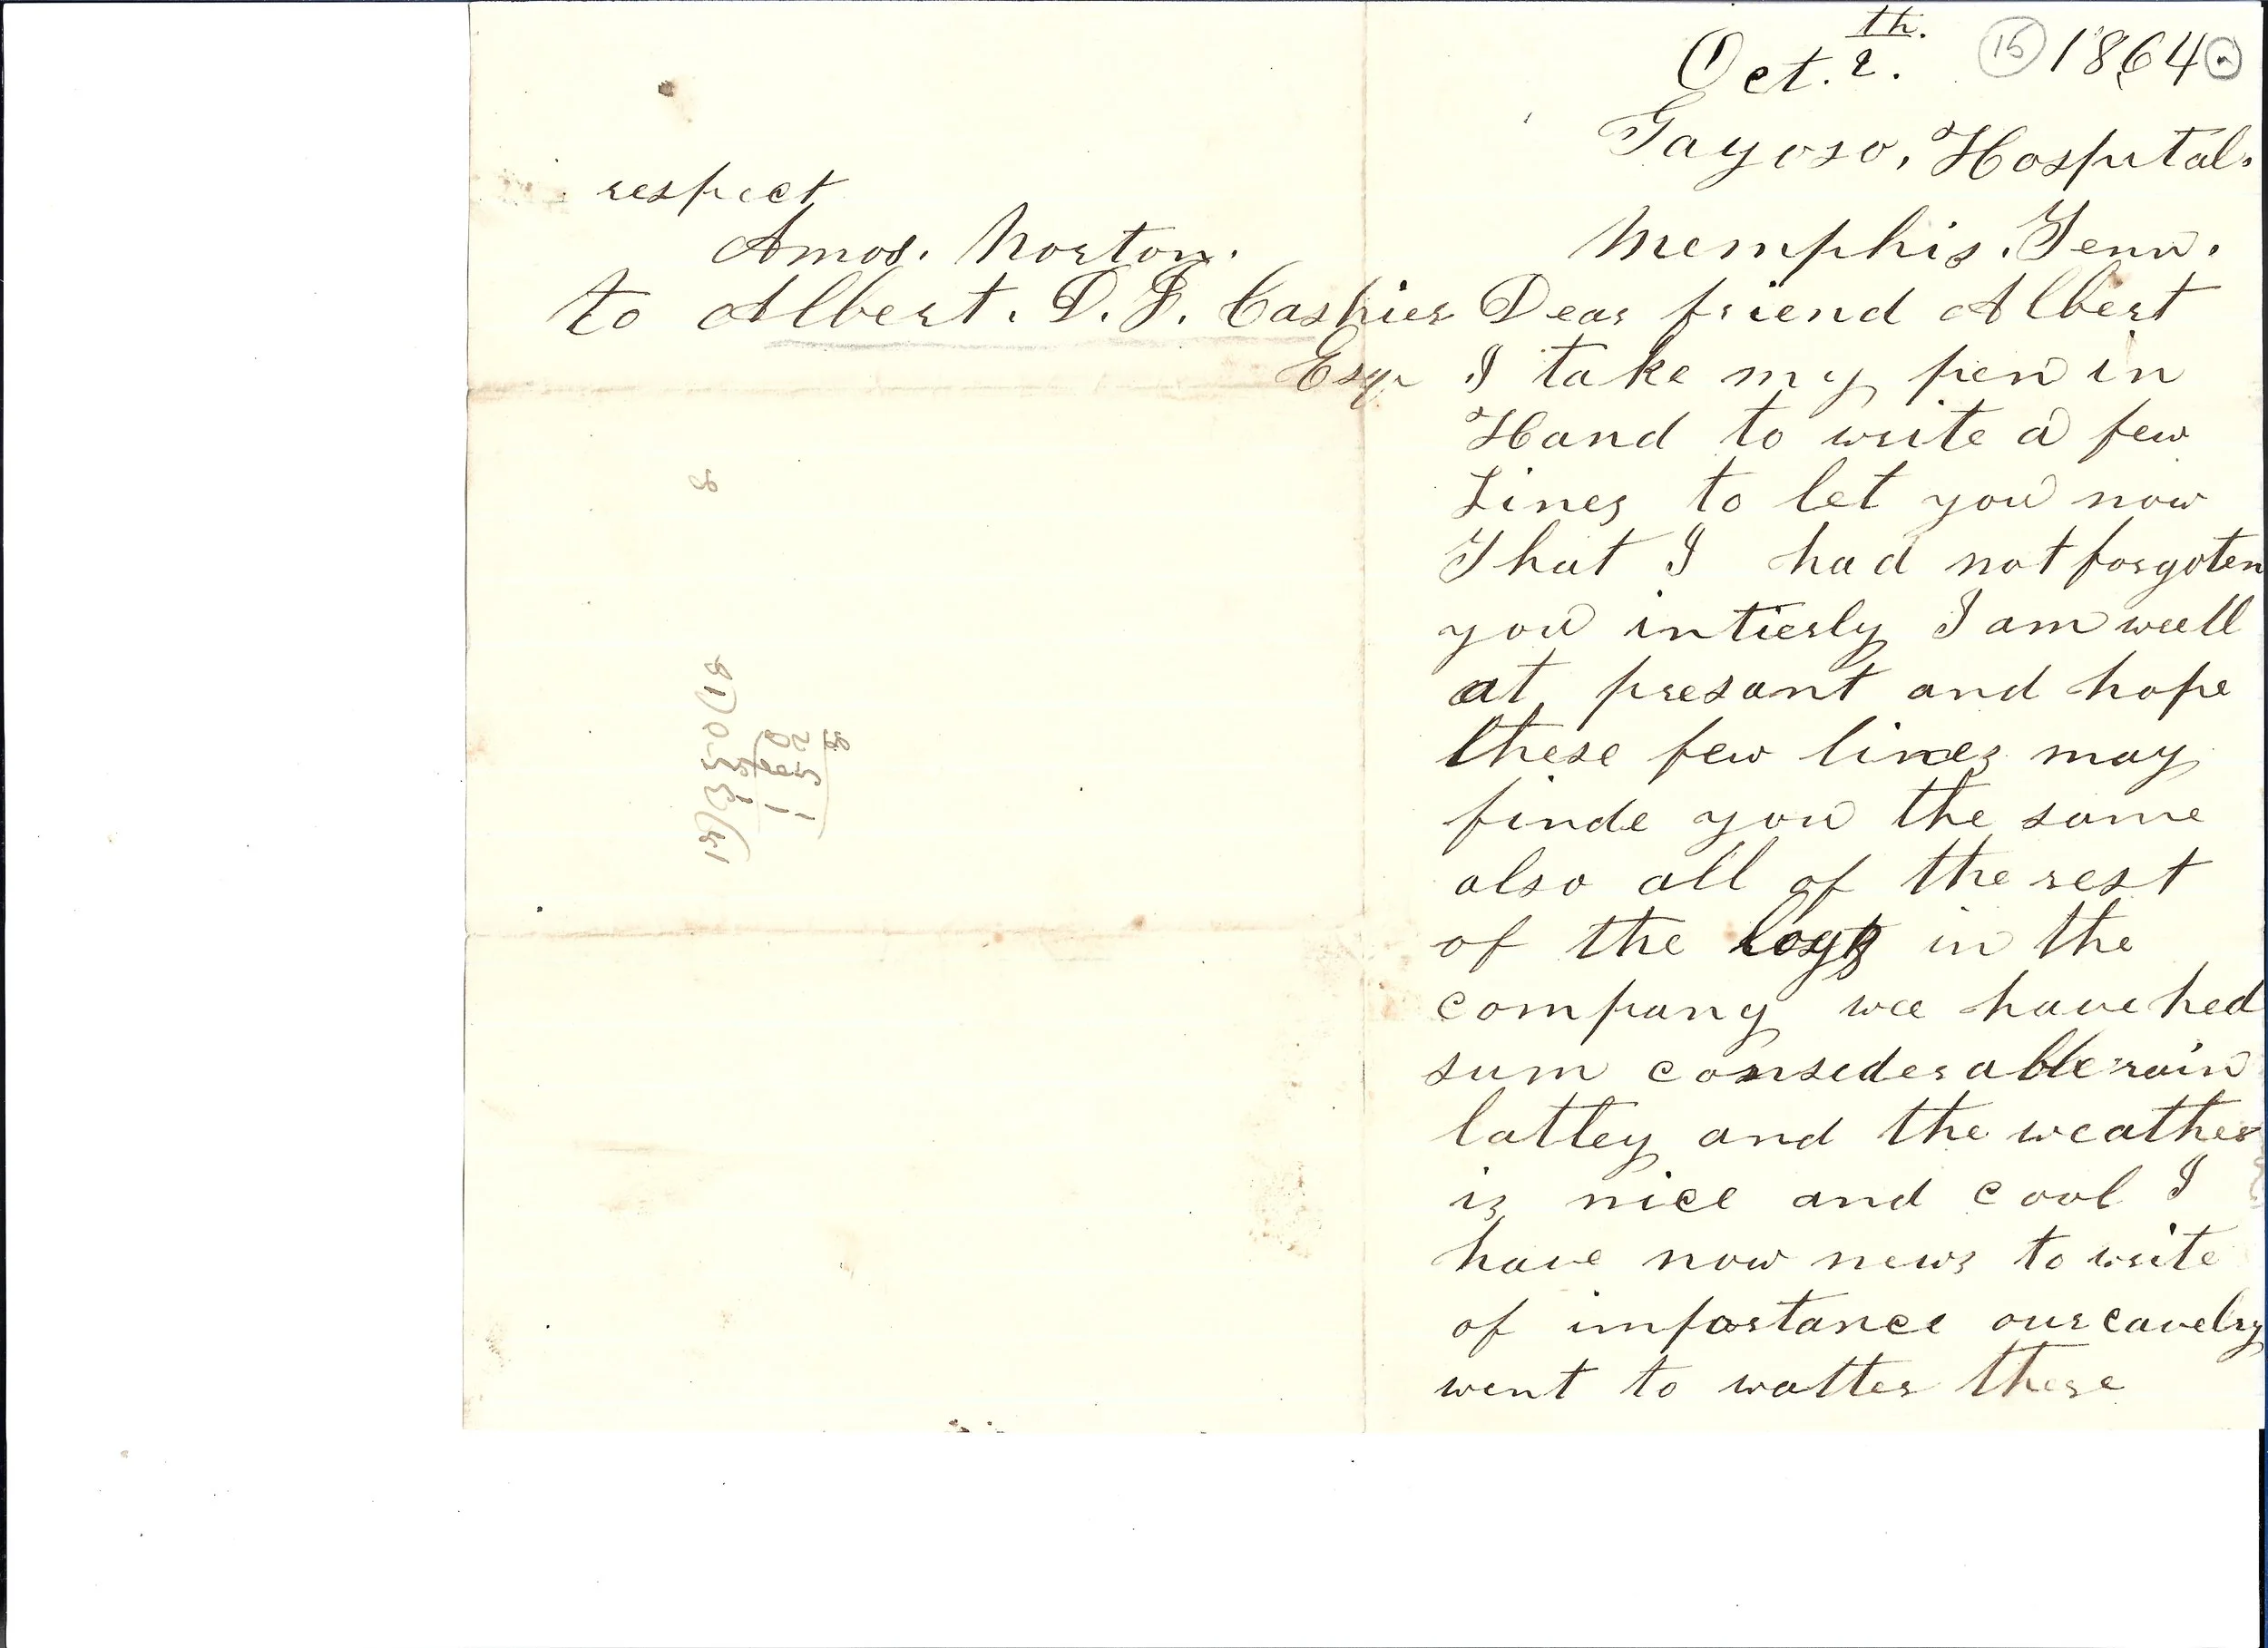 respect
Amos. Norton.
to Albert. D. F. Cashier
Esqr
Oct. 2.th. 15 1864
Gayoso, Hospital.
Memphis. Tenn.
Dear friend Albert
I take my pen in
Hand to write a few
Lines to let you now
That I had not forgoten
you intierly I am well
at presant and hope
these few lines may
finde you the same
also all of the rest
of the boys in the
company wee have hed
sum considerable rain
lattley and the weather
is nice and cool I
have now news to write
of importance our cavelry
went to watter there